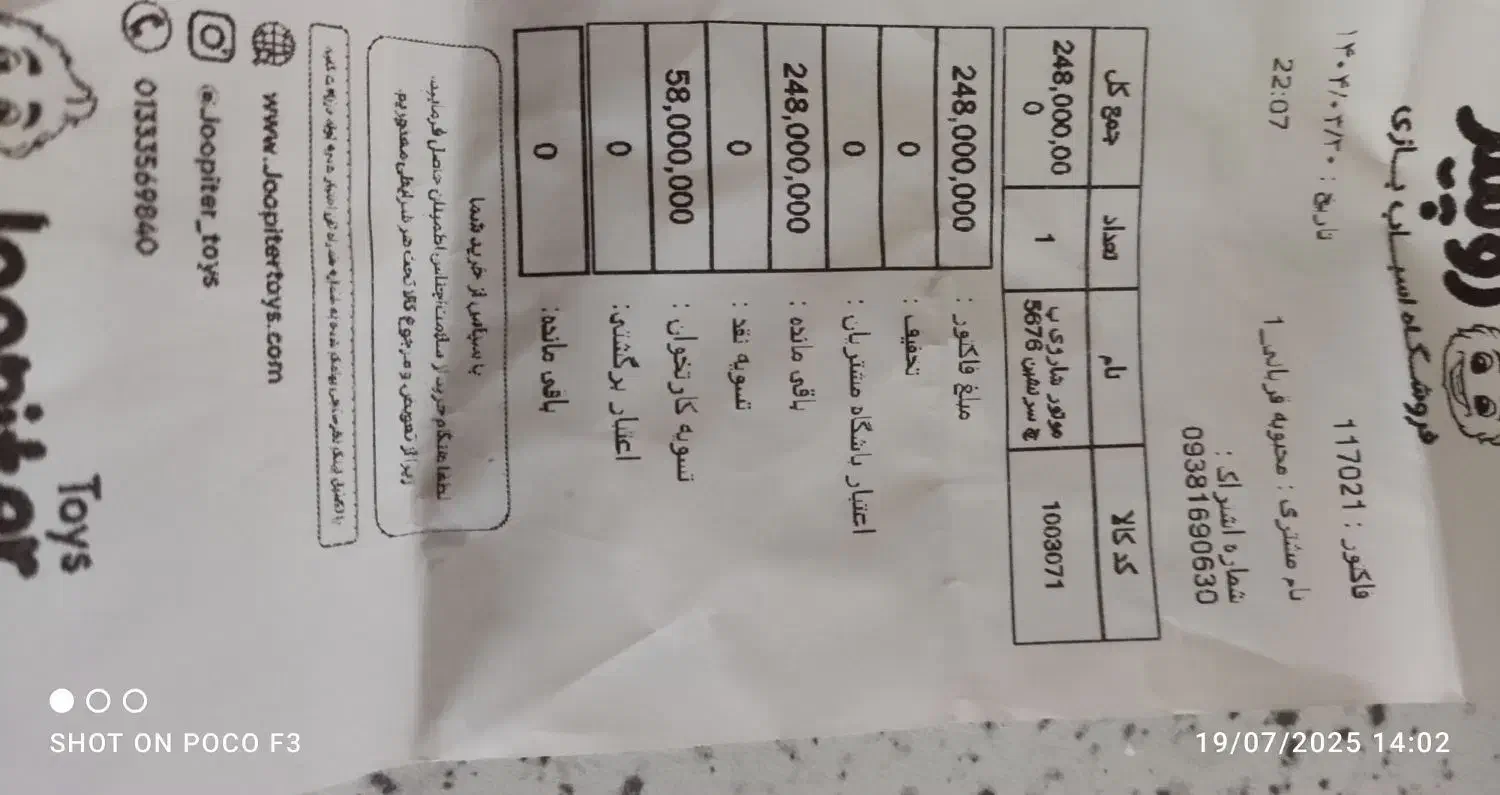 ژوپیتر
فروشگاه اسباب بازی
فاکتور : 117021
تاریخ : ۱۴۰۴/۰۳/۲۰
22:07
نام مشتری : محبوبه قربانی_1
شماره اشتراک :
09381690630
کد کالا نام تعداد جمع کل
1003071 موتور شارژی پ 1 248,000,00
5676 سرنشین 0
مبلغ فاکتور : 248,000,000
تخفیف : 0
اعتبار باشگاه مشتریان : 0
باقی مانده : 248,000,000
تسویه نقد : 0
تسویه کارتخوان : 58,000,000
اعتبار برگشتی : 0
باقی مانده: 0
با سپاس از خرید شما
لطفا هنگام خرید از سلامت اجناس اطمینان حاصل فرمایید.
زیرا از تعویض و مرجوع کالا تحت هر شرایطی معذوریم.
www.Joopitertoys.com
@Joopiter_toys
01333569840
Joopiter
Toys
SHOT ON POCO F3
19/07/2025 14:02